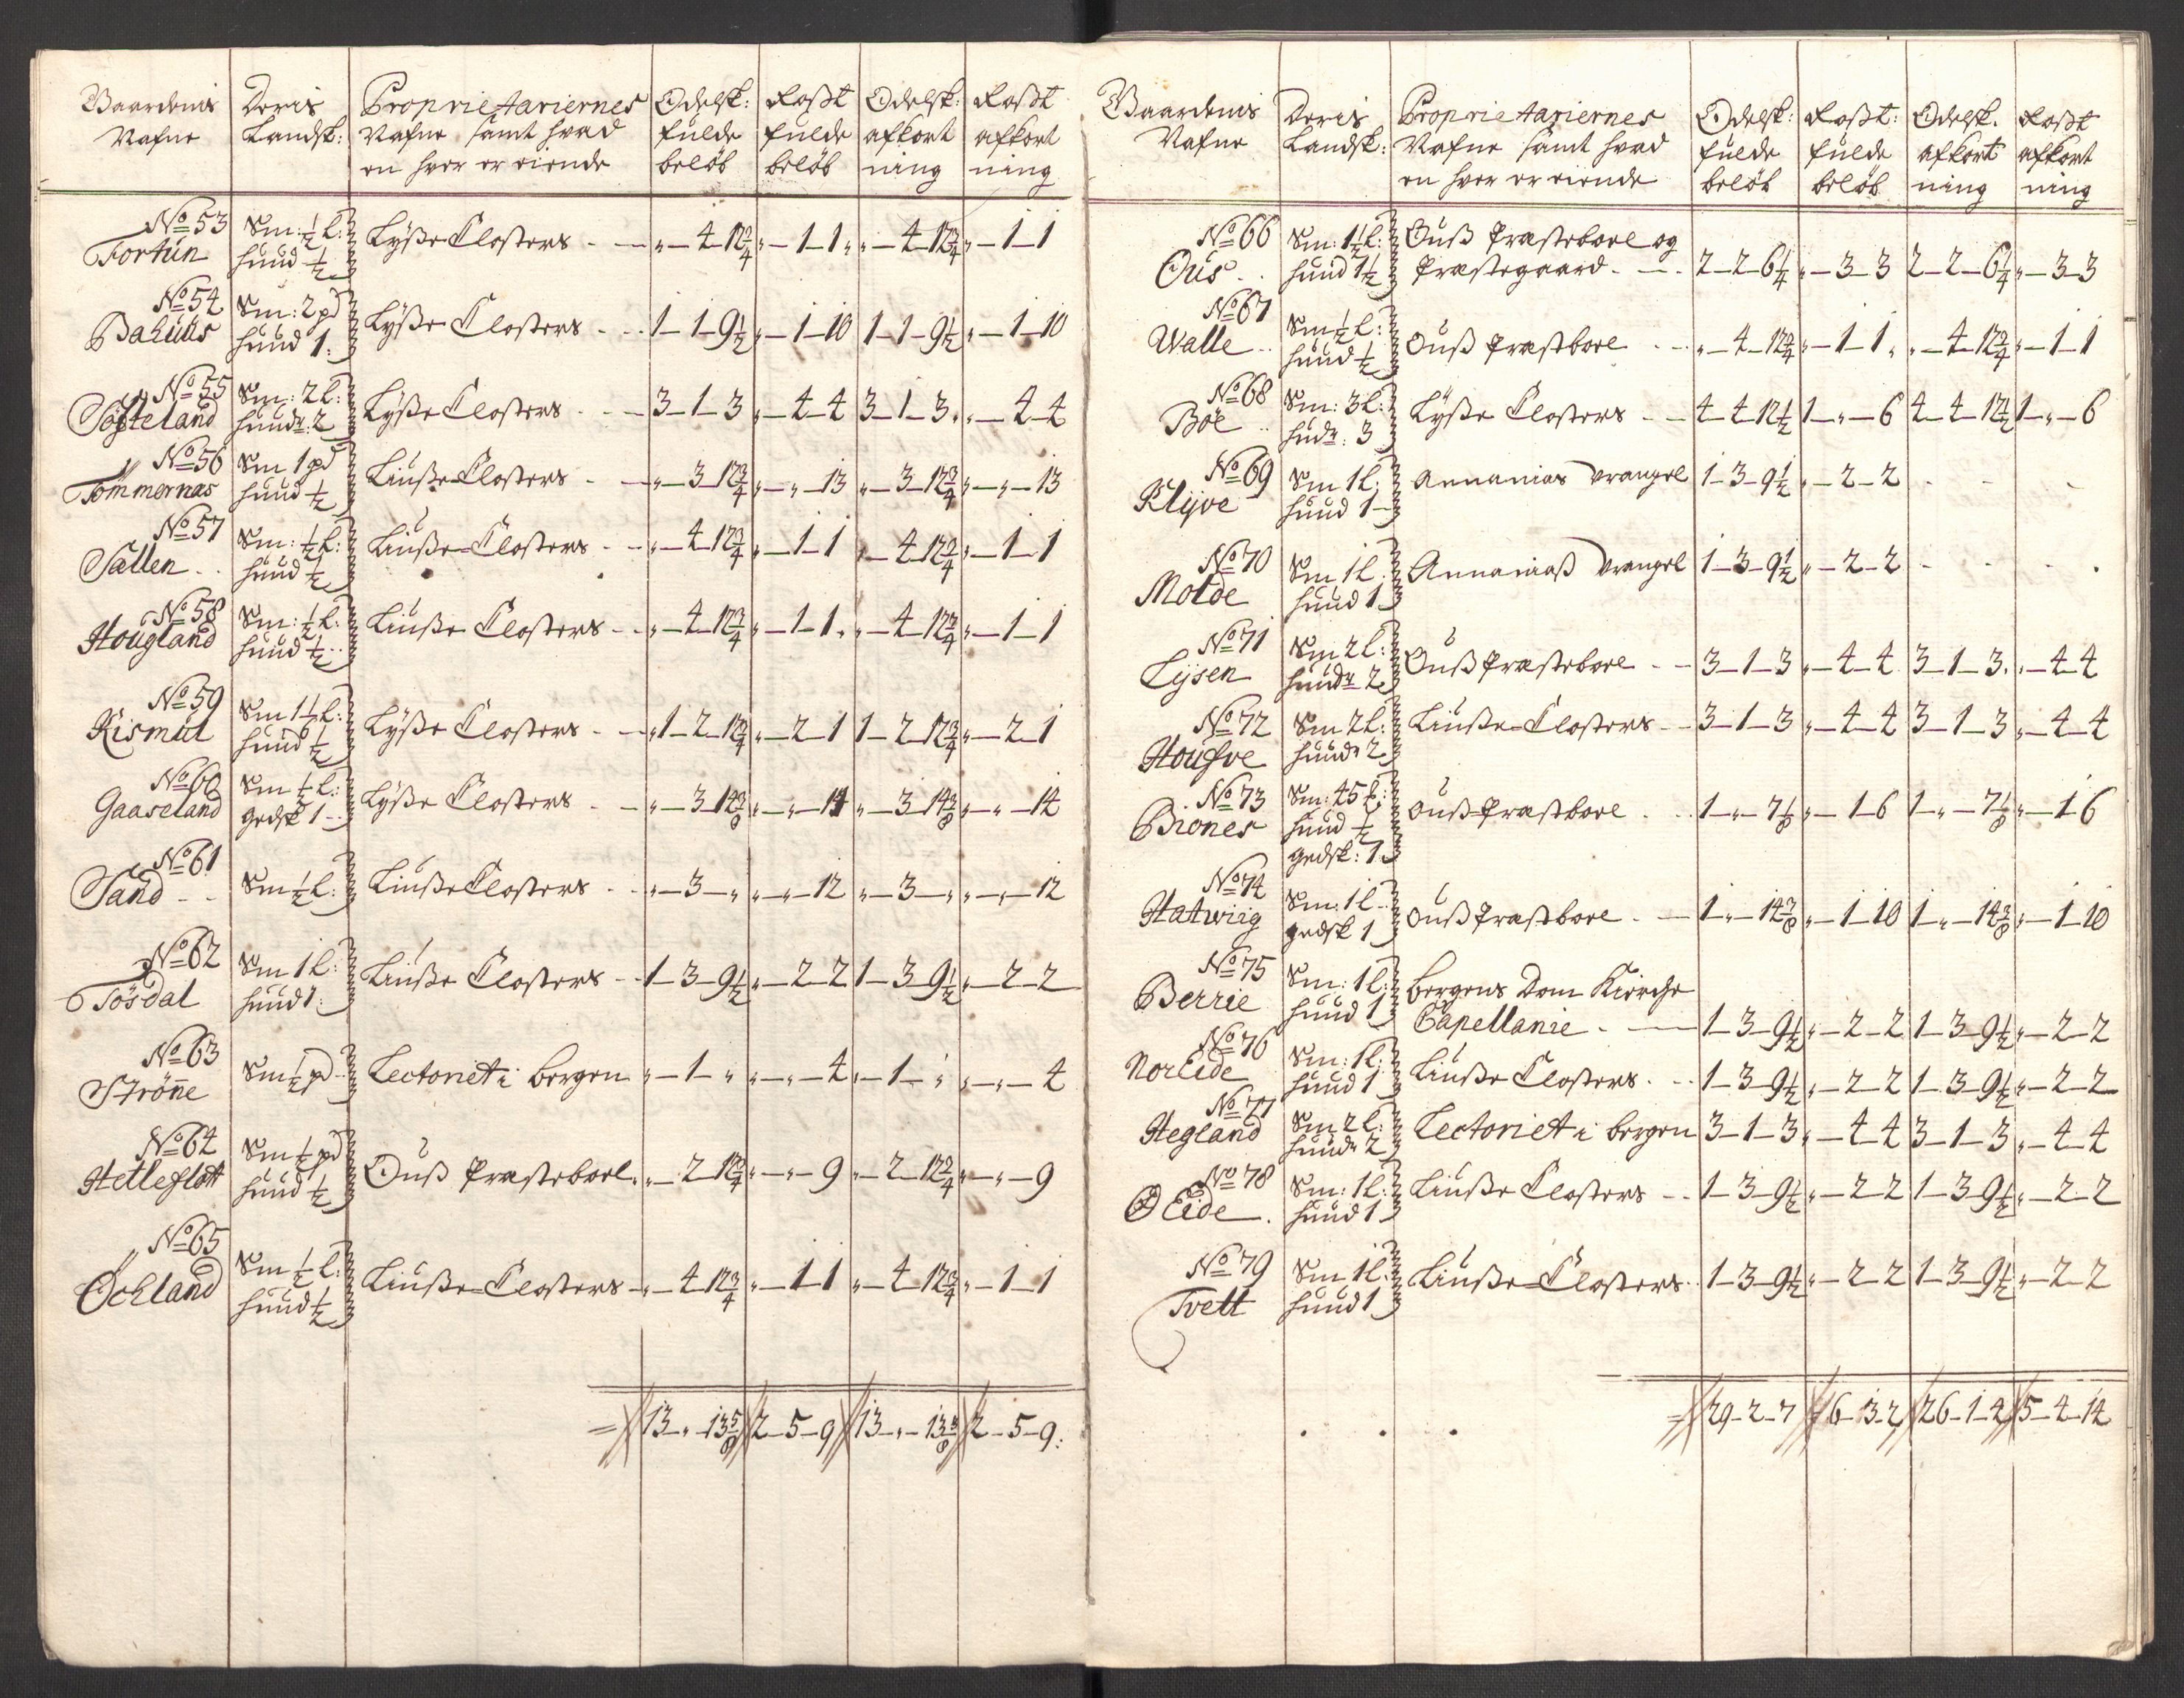 Gaardenis Nafne | Deris Landsk: | Proprietariernes Nafne samt hvad en hver er eiende | Odelsk: fulde beløb | Roßt fulde beløb | Odelsk: afkortning | Roßt afkortning
No 53 Tortun | Sm: ½ l: huud ½ | Lysße Closters | „-4-12¾ | „-1-1 | „-4-12¾ | „-1-1
No 54 Bahuus | Sm: 2 pd huud 1 | Lysße Closters | 1-1-9½ | „-1-10 | 1-1-9½ | „-1-10
No 55 Søfteland | Sm: 2 l: huudr: 2 | Lysße Closters | 3-1-3 | „-4-4 | 3-1-3 | „-4-4
No 56 Tömmernas | Sm 1 pd huud ½ | Liusße Closters | „-3-12¾ | „-„-13 | „-3-12¾ | „-„-13
No 57 Sallen | Sm: ½ l: huud ½ | Liusße Closters | „-4-12¾ | „-1-1 | „-4-12¾ | „-1-1
No 58 Hougland | Sm: ½ l: huud ½ | Liusße Closters | „-4-12¾ | „-1-1 | „-4-12¾ | „-1-1
No 59 Kismul | Sm 1½ l: huud ½ | Lysße Closters | 1-2-12¾ | „-2-1 | 1-2-12¾ | „-2-1
No 60 Gaaseland | Sm ½ l: gedsk 1 | Lysße Closters | „-3-14⅜ | „-„-14 | „-3-14⅜ | „-„-14
No 61 Sand | Sm ½ l: | Liusße Closters | „-3-„ | „-„-12 | „-3-„ | „-„-12
No 62 Tösdal | Sm 1 l: huud 1 | Liusße Closters | 1-3-9½ | „-2-2 | 1-3-9½ | „-2-2
No 63 Ströne | Sm ½ pd | Lectoriet i bergen | „-1-„ | „-„-4 | „-1-„ | „-„-4
No 64 Hetleflott | Sm ½ pd huud ½ | Ouß Præsteboel | „-2-12¾ | „-„-9 | „-2-12¾ | „-„-9
No 65 Öchland | Sm ½ l: huud ½ | Liusße Closters | „-4-12¾ | „-1-1 | „-4-12¾ | „-1-1
13-„-13⅝ | 2-5-9 | 13-„-13⅝ | 2-5-9
Gaardenis Nafne | Deris Landsk: | Proprietariernes Nafne samt hvad en hver er eiende | Odelsk: fulde beløb | Roßt: fulde beløb | Odelsk. afkortning | Roßt afkortning
No 66 Ous | Sm: 1½ l: huud 1½ | Ouß Præsteboel og Præstegaard | 2-2-6¼ | „-3-3 | 2-2-6¼ | „-3-3
No 67 Walle | Sm ½ l: huud ½ | Ouß Præstboel | „-4-12¾ | „-1-1 | „-4-12¾ | „-1-1
No 68 Böe | Sm: 3 l: hudr: 3 | Lysße Closters | 4-4-12½ | 1-„-6 | 4-4-12½ | 1-„-6
No 69 Klyve | Sm 1 l: huud 1 | Annanias Vrangel | 1-3-9½ | „-2-2
No 70 Molde | Sm 1 l: huud 1 | Annaniaß Vrangel | 1-3-9½ | „-2-2
No 71 Lysen | Sm 2 l: huudr 2 | Ouß Præsteboel | 3-1-3 | „-4-4 | 3-1-3 | „-4-4
No 72 Houfve | Sm 2 l: huudr 2 | Liusße Closters | 3-1-3 | „-4-4 | 3-1-3 | „-4-4
No 73 Biönes | Sm: 45 ℔: huud ½ gedsk: 1 | Ouß Præstboel | 1-„-7⅛ | „-1-6 | 1-„-7⅛ | „-1-6
No 74 Hatwiig | Sm: 1 l gedsk 1 | Ouß Præstboel | 1-„-14⅜ | „-1-10 | 1-„-14⅜ | „-1-10
No 75 Berrie | Sm: 1 l: huud 1 | bergens Dom Kierche Capellanie | 1-3-9½ | „-2-2 | 1-3-9½ | „-2-2
No 76 Nor Eide | Sm: 1 l: huud 1 | Liusße Closters | 1-3-9½ | „-2-2 | 1-3-9½ | „-2-2
No 77 Hegland | Sm 2 l: huudr 2 | Lectoriet i bergen | 3-1-3 | „-4-4 | 3-1-3 | „-4-4
No 78 Ø Eide | Sm: 1 l: huud 1 | Liusße Closters | 1-3-9½ | „-2-2 | 1-3-9½ | „-2-2
No 79 Tvett | Sm 1 l: huud 1 | Liusße Closters | 1-3-9½ | „-2-2 | 1-3-9½ | „-2-2
29-2-7 | 6-3-2 | 26-1-4 | 5-4-14